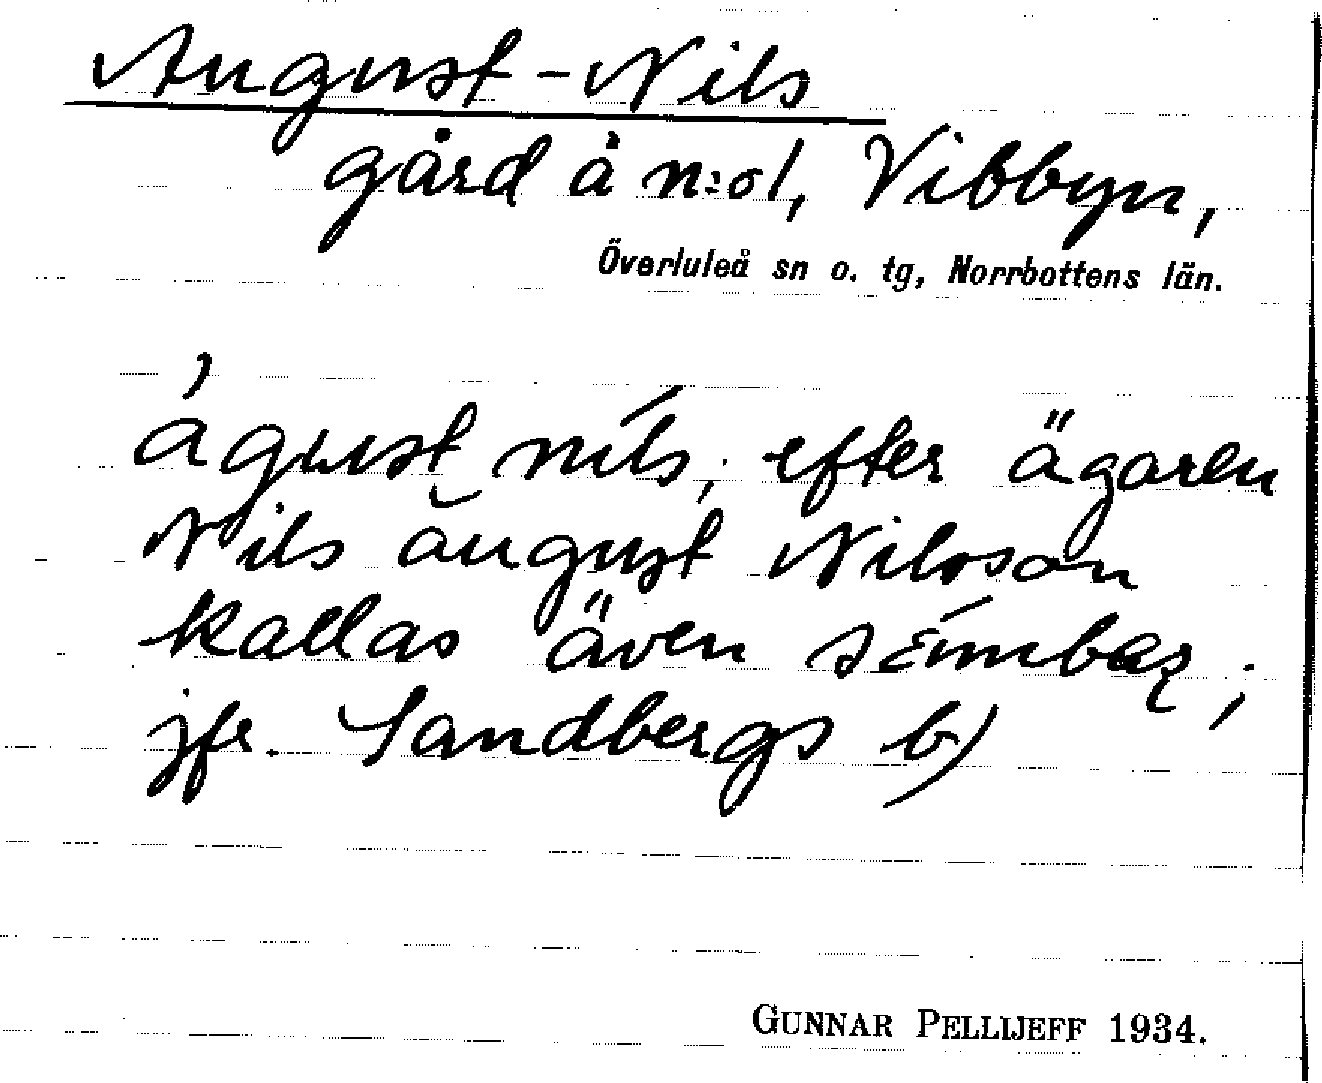 August-Nils
gård å n:o 1, Vibbyn,
Överluleå sn o. tg, Norrbottens län.
águst nils, efter ägaren
Nils August Nilsson
kallas även
jfr. Sandbergs b)
GUNNAR PELLIJEFF 1934.